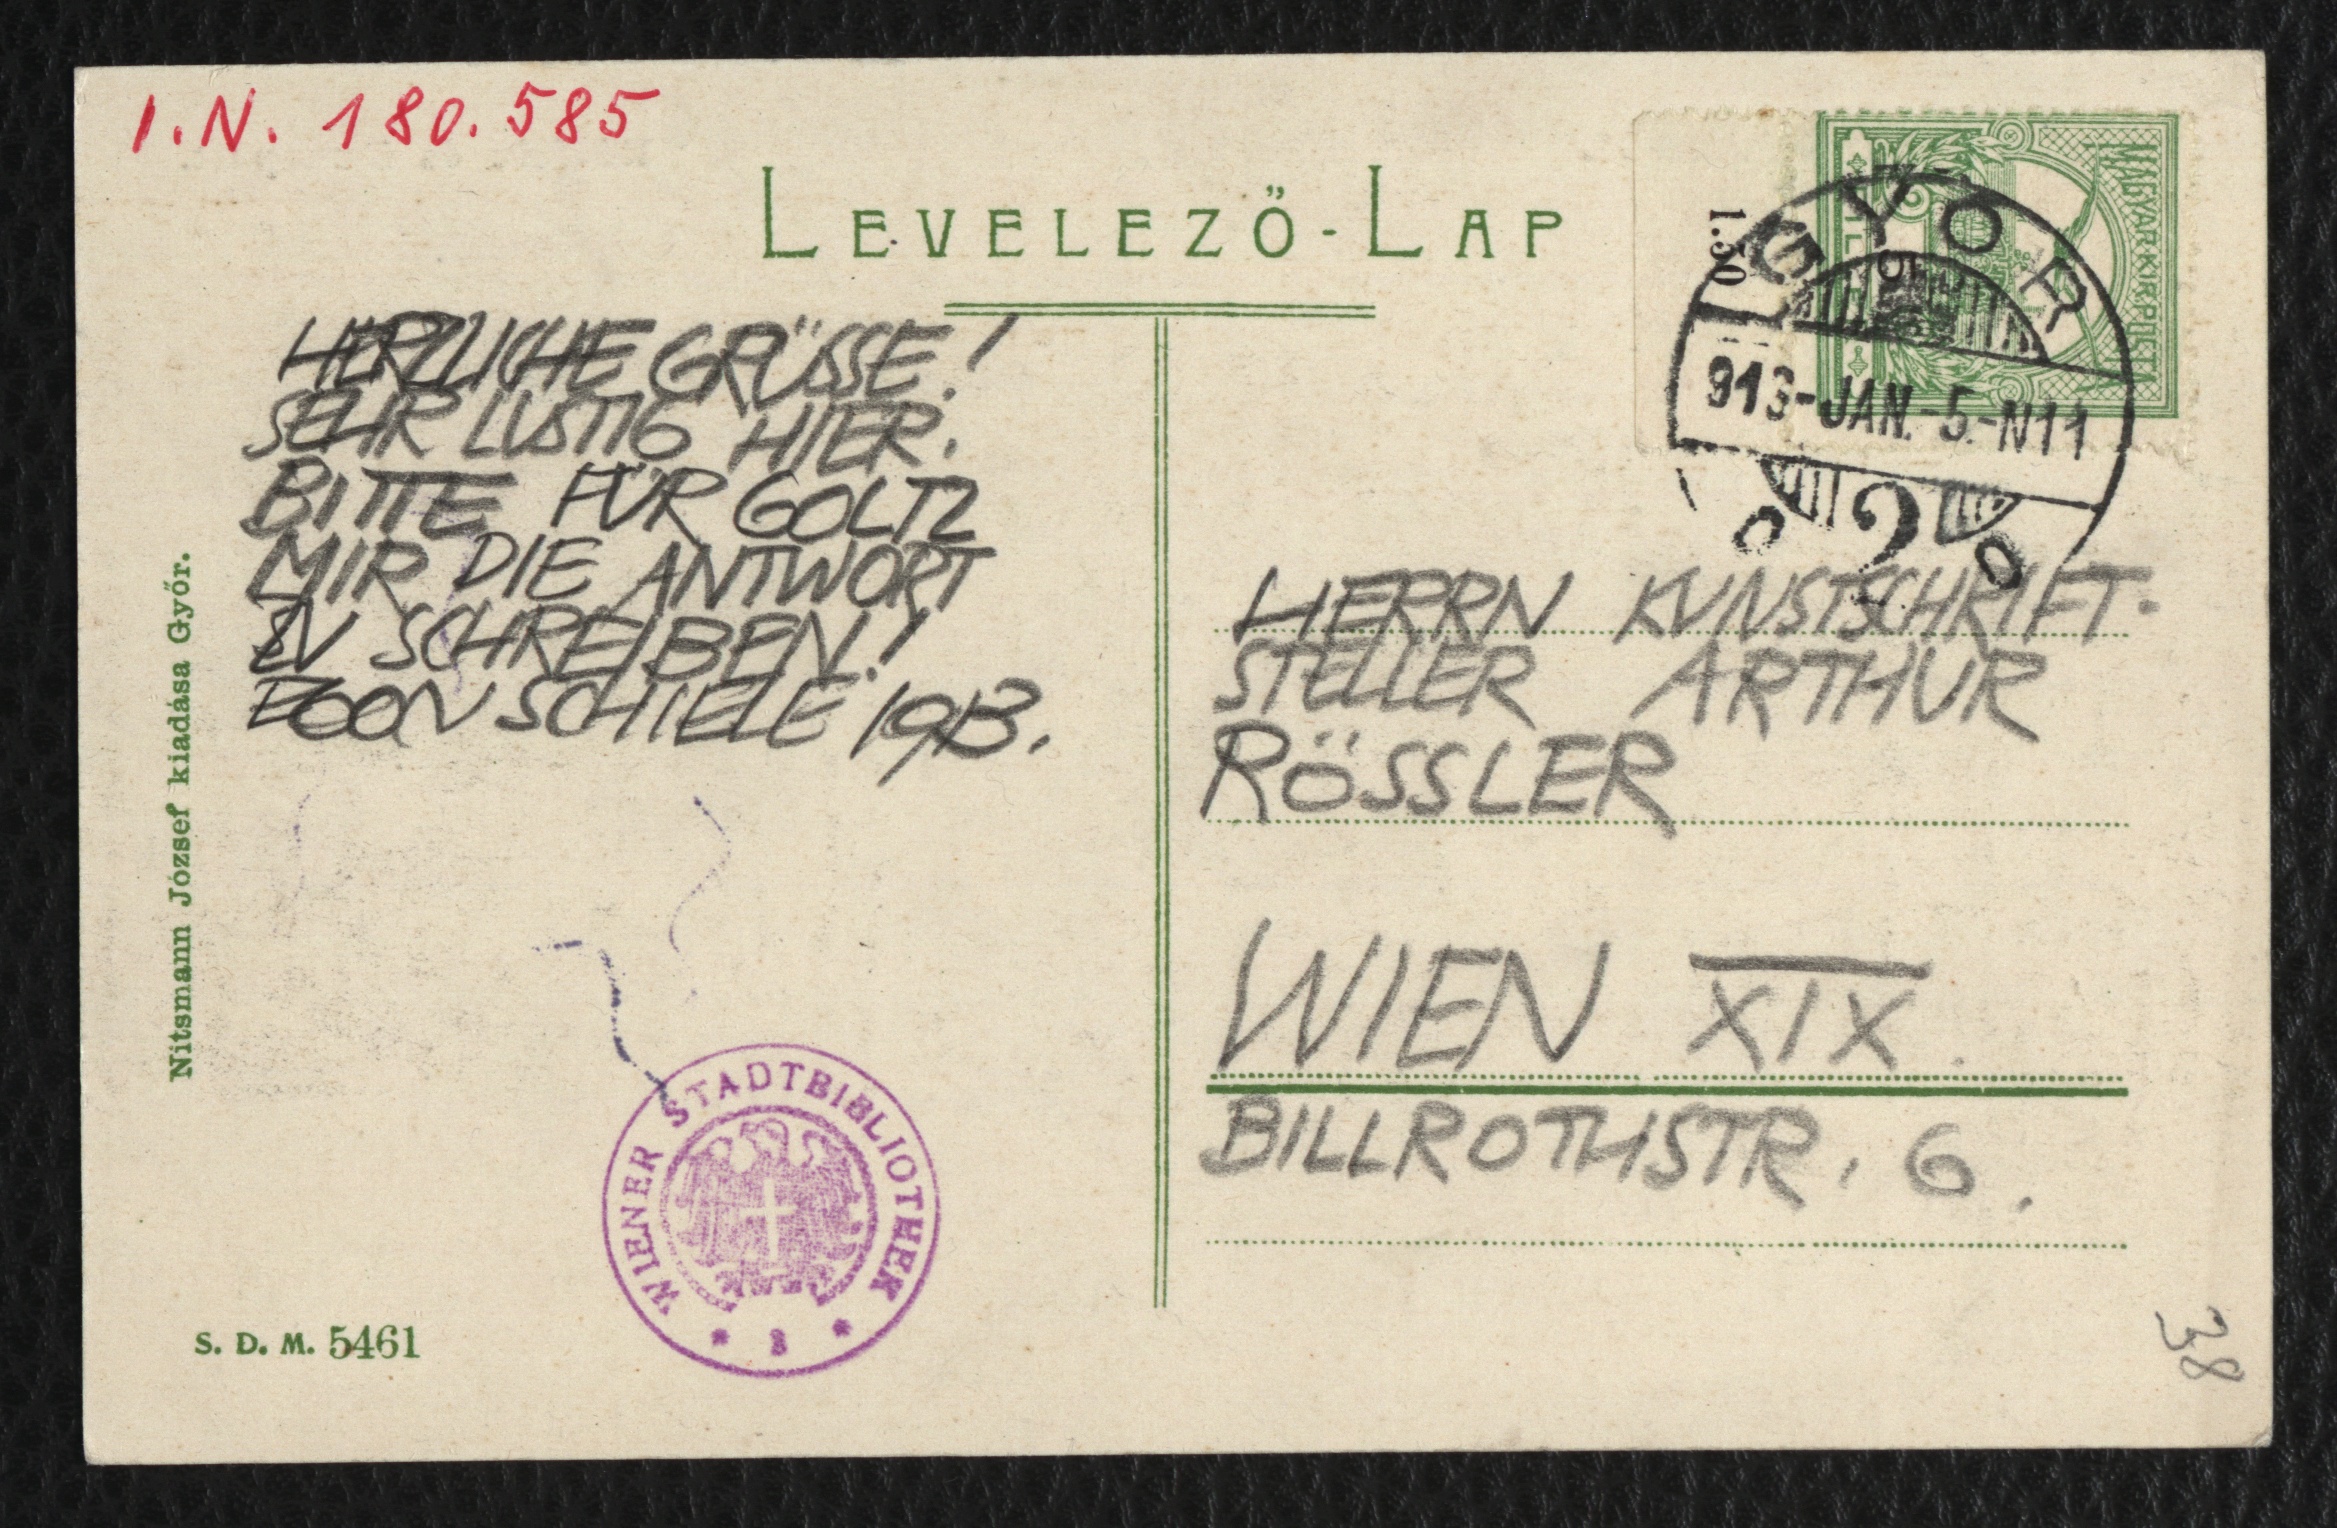 I.N. 180.585
LEVELEZŐ-LAP
1.50
MAGYAR KIR. POSTA
GYŐR
913-JAN.-5.-N11
2
HERZLICHE GRÜSSE!
SEHR LUSTIG HIER.
BITTE FÜR GOLTZ
MIR DIE ANTWORT
ZU SCHREIBEN!
EGON SCHIELE 1913.
HERRN KUNSTSCHRIFT-
STELLER ARTHUR
RÖSSLER
WIEN XIX.
BILLROTHSTR. 6.
Nitsmann József kiadása Győr.
WIENER STADTBIBLIOTHEK
S. D. M. 5461
38